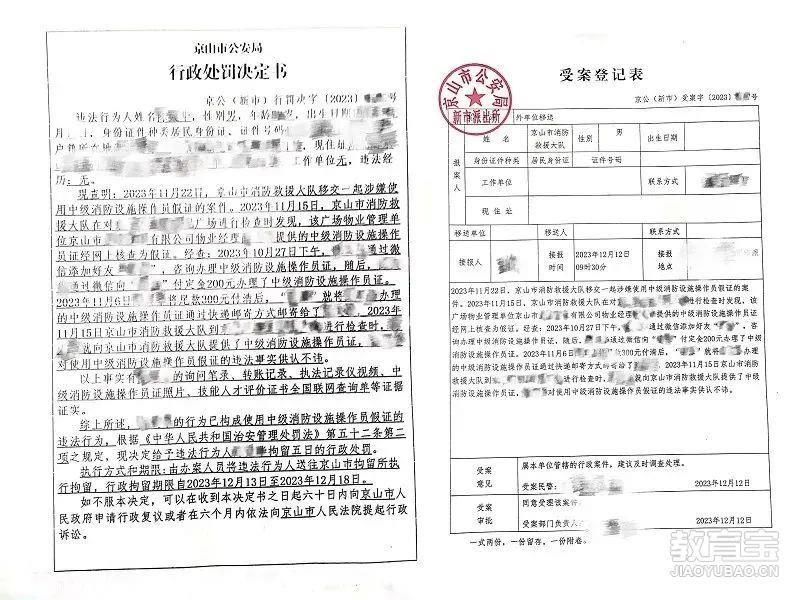 京山市公安局
行政处罚决定书
京公（新市）行罚决字〔2023〕 号
违法行为人姓名 ，性别男，年龄 ，出生日期
月 日，身份证件种类居民身份证，证件号码
户籍所在地 ，现住址
工作单位无，违法经
历：无。
现查明：2023年11月22日，京山市消防救援大队移交一起涉嫌使
用中级消防设施操作员假证的案件。2023年11月15日，京山市消防救
援大队在对 广场进行检查时发现，该广场物业管理单
位京山市 有限公司物业经理 提供的中级消防设施操作
员证经网上核查为假证。经查：2023年10月27日下午， 通过微
信添加好友“ ”，咨询办理中级消防设施操作员证，随后，
通过微信向“ ”付定金200元办理了中级消防设施操作员证。
2023年11月6日 将尾款300元付清后，“ ”就将 办理
的中级消防设施操作员证通过快递邮寄方式邮寄给了 ，2023年
11月15日京山市消防救援大队到 进行检查时，
就向京山市消防救援大队提供了中级消防设施操作员证，
对使用中级消防设施操作员假证的违法事实供认不讳。
以上事实有 的询问笔录、转账记录、执法记录仪视频、中
级消防设施操作员证照片、技能人才评价证书全国联网查询单等证据
证实。
综上所述， 的行为已构成使用中级消防设施操作员假证的
违法行为，根据《中华人民共和国治安管理处罚法》第五十二条第二
项之规定，现决定给予违法行为人 拘留五日的行政处罚。
执行方式和期限：由办案人员将违法行为人送往京山市拘留所执
行拘留，行政拘留期限自2023年12月13日至2023年12月18日。
如不服本决定，可以在收到本决定书之日起六十日内向京山市人
民政府申请行政复议或者在六个月内依法向京山市人民法院提起行政
诉讼。
受案登记表
京山市公安局
新市派出所
京公（新市）受案字〔2023〕 号
外单位移送
报案人
姓名 京山市消防救援大队 性别 男 出生日期
身份证件种类 居民身份证 证件号码
工作单位 联系方式
现住址
移送单位 移送人 联系方式
接报人 接报时间 2023年12月12日09时30分 接报地点
2023年11月22日，京山市消防救援大队移交一起涉嫌使用中级消防设施操作员假证的案
件。2023年11月15日，京山市消防救援大队在对 进行检查时发现，该
广场物业管理单位京山市 有限公司物业经理 提供的中级消防设施操作员证
经网上核查为假证。经查：2023年10月27日下午， 通过微信添加好友“ ”，咨
询办理中级消防设施操作员证，随后， 通过微信向“ ”付定金200元办理了中级
消防设施操作员证。2023年11月6日 300元付清后，“ ”就将 办
理的中级消防设施操作员证通过快递邮寄方式邮寄给了 ，2023年11月15日京山市消防
救援大队到 进行检查时， 就向京山市消防救援大队提供了中级消
防设施操作员证， 对使用中级消防设施操作员假证的违法事实供认不讳。
受案意见 属本单位管辖的行政案件，建议及时调查处理。
受案民警： 2023年12月12日
受案审批 同意受理该案件
受案部门负责人： 2023年12月12日
一式两份，一份留存，一份附卷。
教育宝
JIAOYUBAO.CN